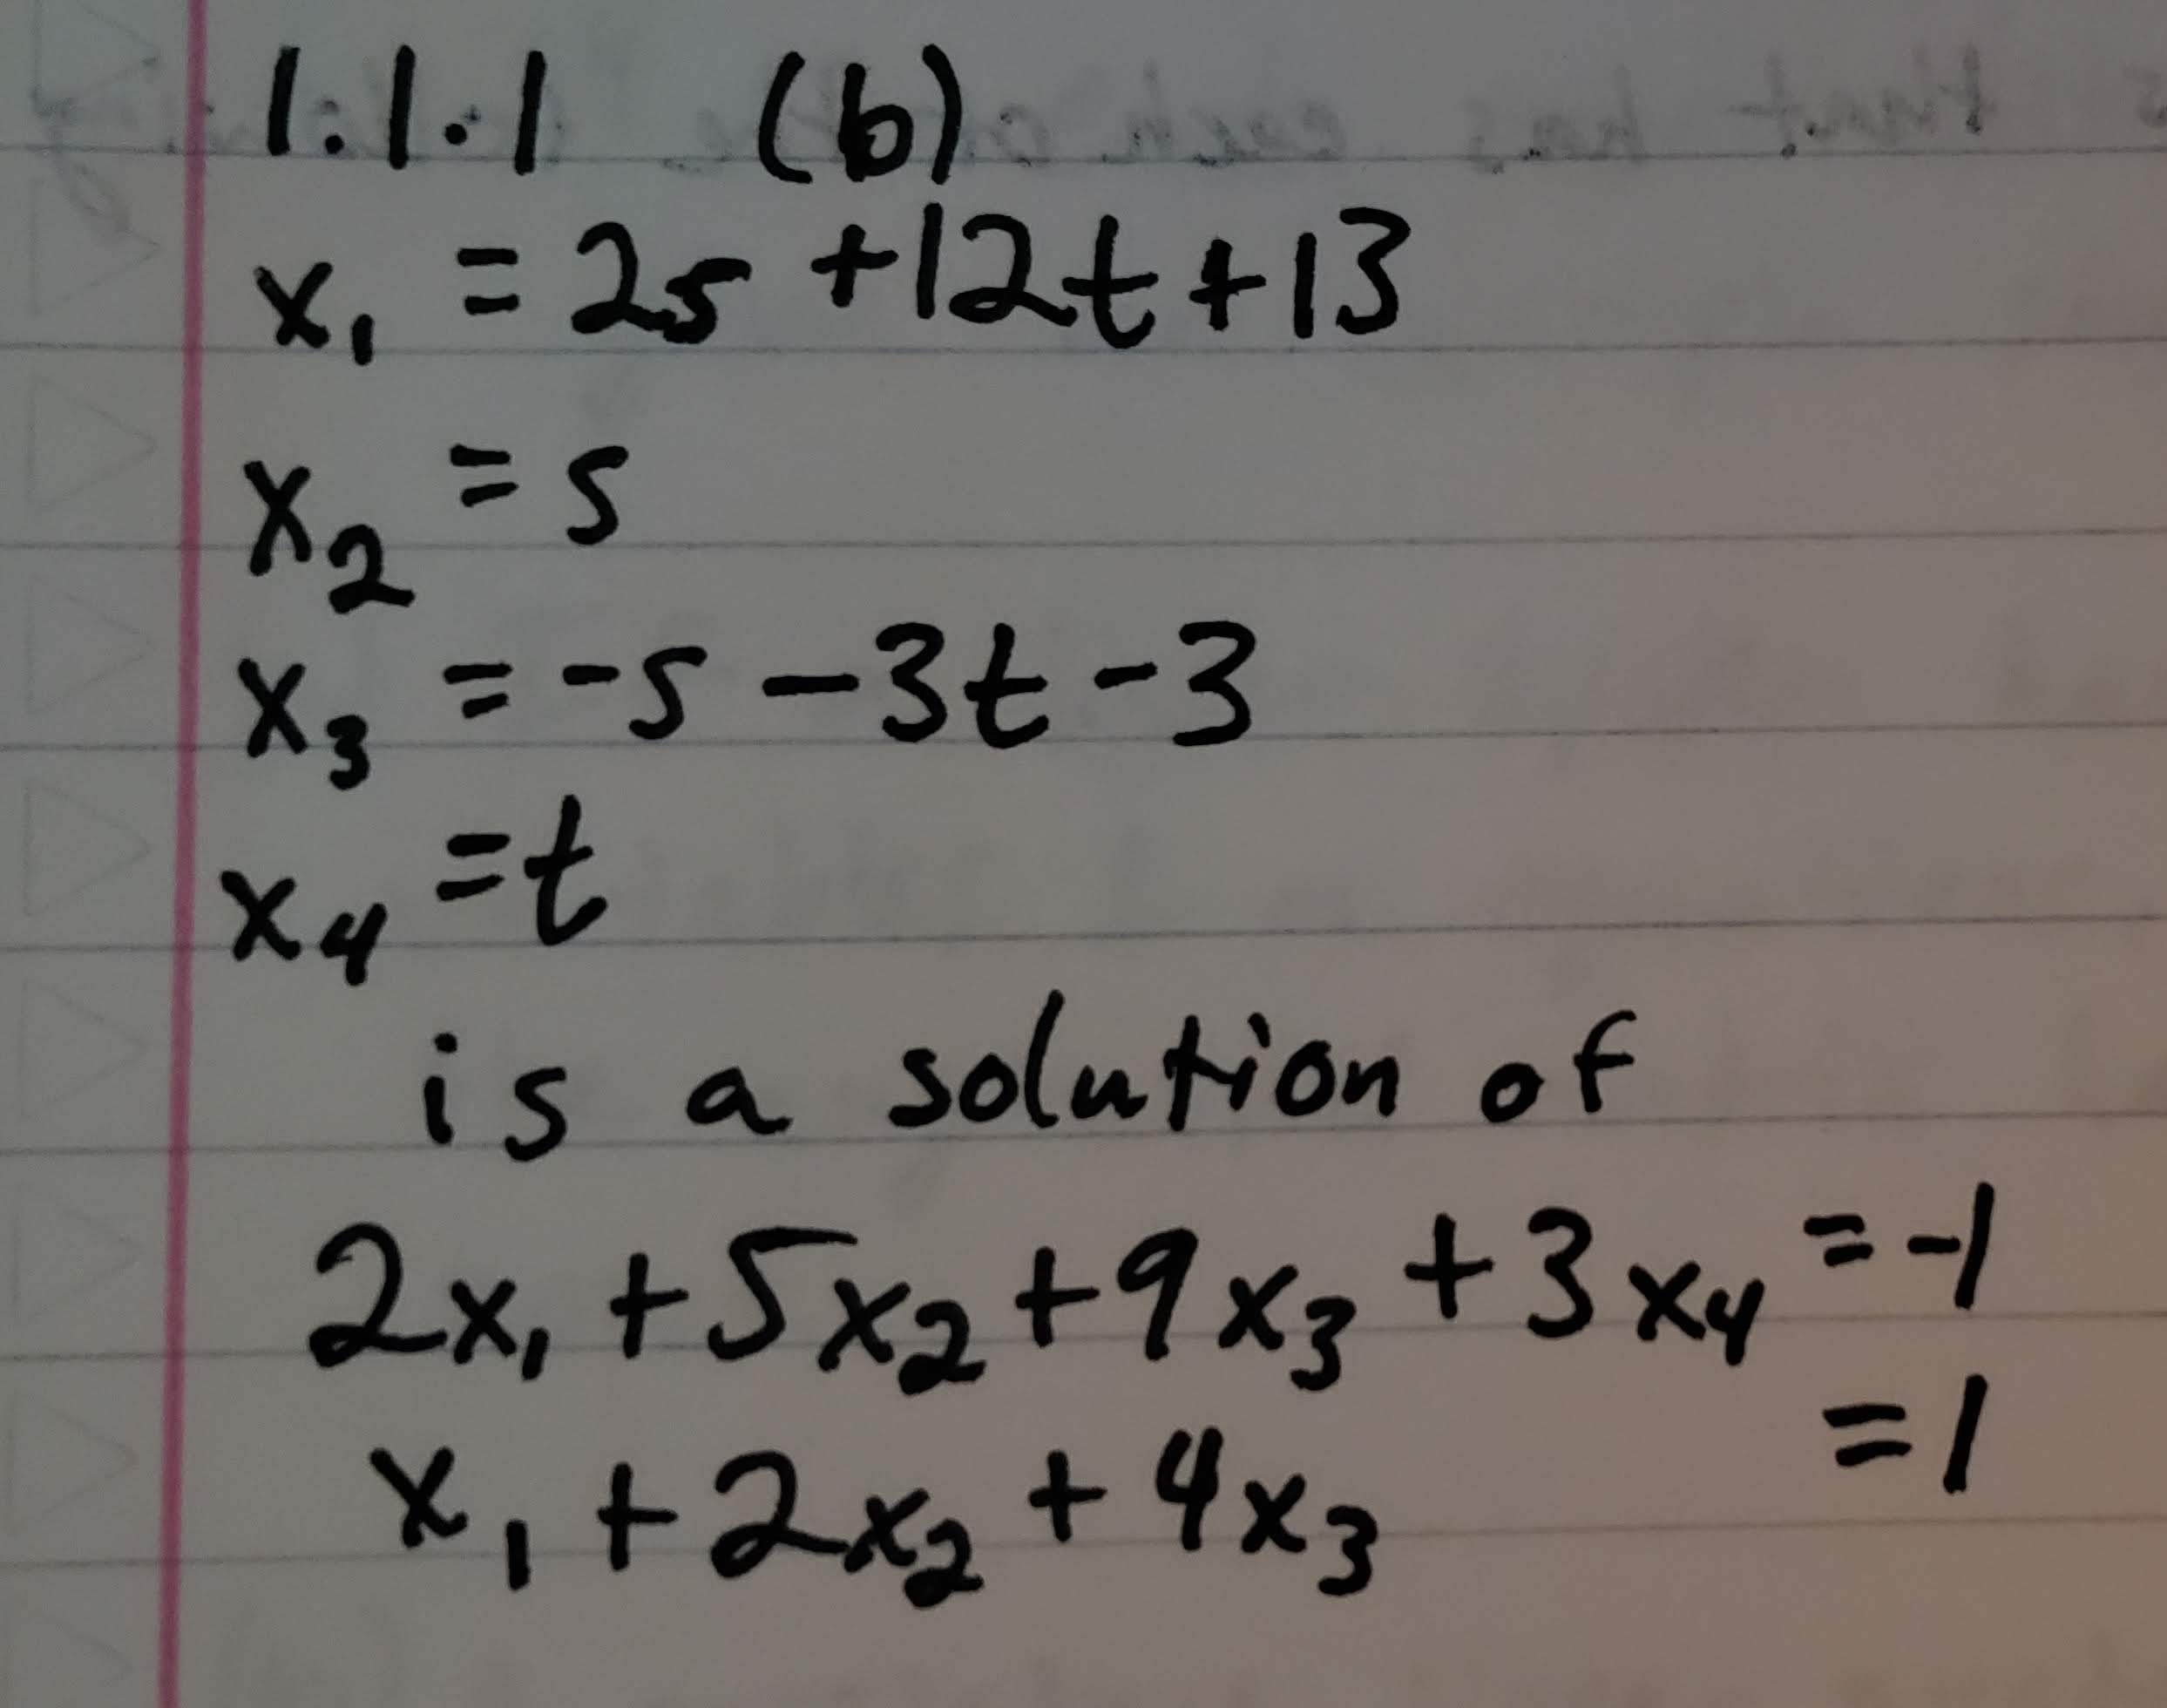 1.1.1 (b)
x₁ = 2s + 12t + 13
x₂ = s
x₃ = -s - 3t - 3
x₄ = t
is a solution of
2x₁ + 5x₂ + 9x₃ + 3x₄ = -1
x₁ + 2x₂ + 4x₃ = 1